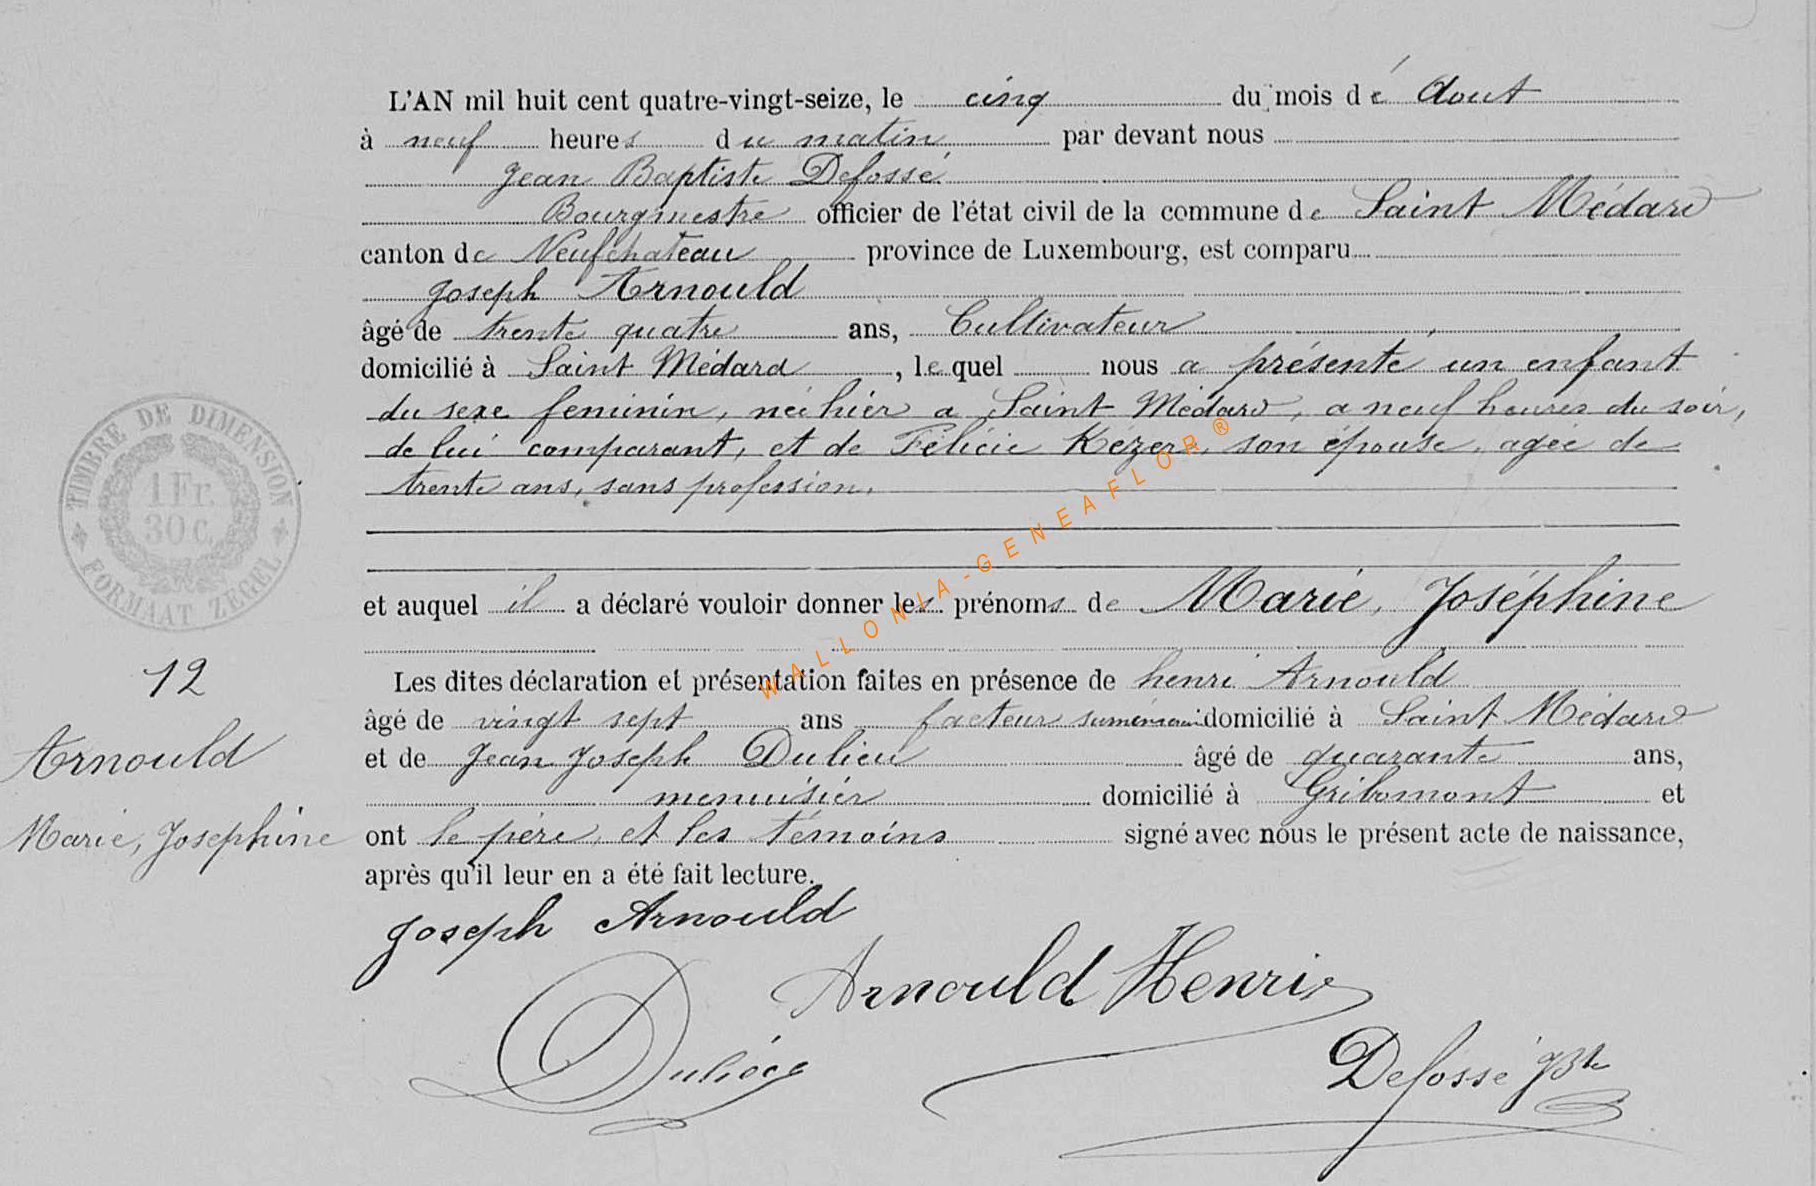 L'AN mil huit cent quatre-vingt-seize, le cinq du mois dé Aout
à neuf heures du matin par devant nous
Jean Baptiste Defossé
Bourgmestre officier de l'état civil de la commune de Saint Médard
canton de Neufchateau province de Luxembourg, est comparu
Joseph Arnould
âgé de trente quatre ans, Cultivateur
domicilié à Saint Médard, lequel nous a présenté un enfant
du sexe feminin, née hier a Saint Médard, a neuf heures du soir,
de lui comparant, et de Félicie Kézer, son épouse, agée de
trente ans, sans profession,
et auquel il a déclaré vouloir donner les prénoms de Marie, Joséphine
Les dites déclaration et présentation faites en présence de henri Arnould
âgé de vingt sept ans facteur domicilié à Saint Médard
et de Jean Joseph Dulieu âgé de quarante ans,
menuisier domicilié à Gribomont et
ont le père, et les témoins signé avec nous le présent acte de naissance,
après qu'il leur en a été fait lecture.
Joseph Arnould
Arnould Henri
Defossé JBte
TIMBRE DE DIMENSION
1 Fr.
30 c.
FORMAAT ZEGEL
12
Arnould
Marie, Josephine
WALLONIA-GENEAFLOR ®